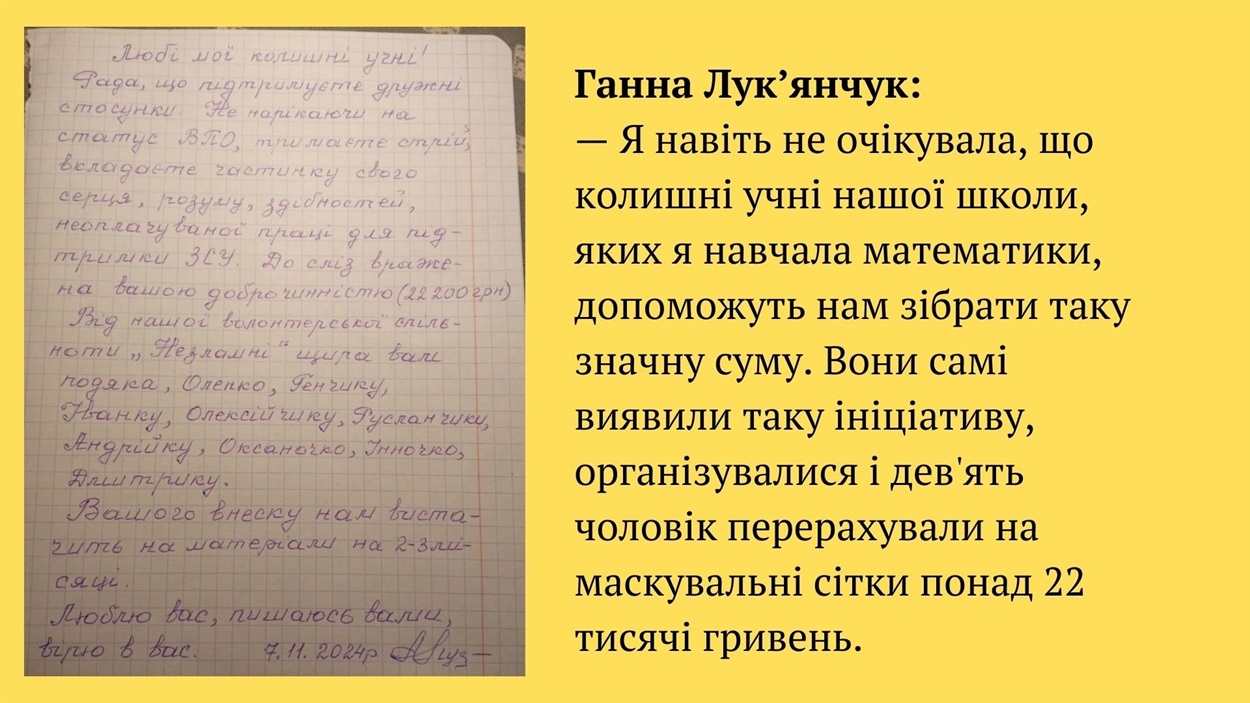 Любі мої колишні учні!
Рада, що підтримуєте дружні
стосунки. Не нарікаючи на
статус ВПО, тримаєте стрій,
вкладаєте частинку свого
серця, розуму, здібностей,
неоплачуваної праці для під-
тримки ЗСУ. До сліз враже-
на вашою доброчинністю (22200 грн)
Від нашої волонтерської спіль-
ноти „Незламні“ щира вам
подяка, Оленко, Генчику,
Іванку, Олексійчику, Русланчику,
Андрійку, Оксаночко, Інночко,
Дмитрику.
Вашого внеску нам виста-
чить на матеріали на 2-3 мі-
сяці.
Люблю вас, пишаюсь вами,
вірю в вас. 7.11.2024р
Ганна Лук’янчук:
— Я навіть не очікувала, що
колишні учні нашої школи,
яких я навчала математики,
допоможуть нам зібрати таку
значну суму. Вони самі
виявили таку ініціативу,
організувалися і дев'ять
чоловік перерахували на
маскувальні сітки понад 22
тисячі гривень.